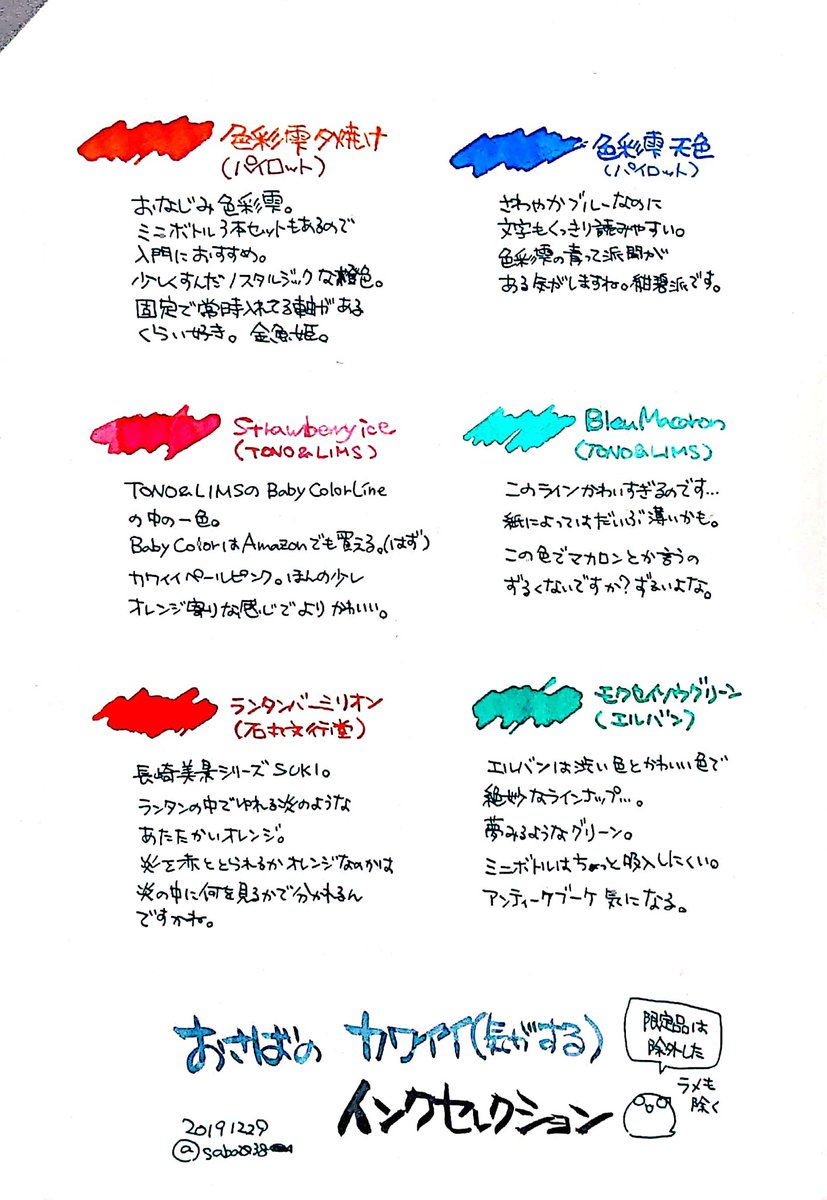 色彩雫 夕焼け
(パイロット)
おなじみ色彩雫。
ミニボトル3本セットもあるので
入門におすすめ。
少しくすんだノスタルジックな橙色。
固定で常時入れてる軸がある
くらい好き。金魚姫。
色彩雫 天色
(パイロット)
さわやかブルーなのに
文字もくっきり読みやすい。
色彩雫の青って派閥が
ある気がしますね。紺碧派です。
Strawberry ice
(TONO&LIMS)
TONO&LIMSの Baby Color Line
の中の一色。
Baby ColorはAmazonでも買える。(はず)
カワイイペールピンク。ほんの少し
オレンジ寄りな感じでよりかわいい。
Bleu Macaron
(TONO&LIMS)
このラインかわいすぎるのです…
紙によってはだいぶ薄いかも。
この色でマカロンとか言うの
ずるくないですか?ずるいよな。
ランタンバーミリオン
(石丸文行堂)
長崎美景シリーズSUKI。
ランタンの中でゆれる炎のような
あたたかいオレンジ。
炎を赤ととられるかオレンジなのかは
炎の中に何を見るかで分かれるん
ですかね。
モクセイソウグリーン
(エルバン)
エルバンは渋い色とかわいい色で
絶妙なラインナップ…。
夢みるようなグリーン。
ミニボトルはちょっと吸入しにくい。
アンティークブーケ 気になる。
おさばの カワイイ(気がする)
インクセレクション
限定品は
除外した
ラメも
除く
20191229